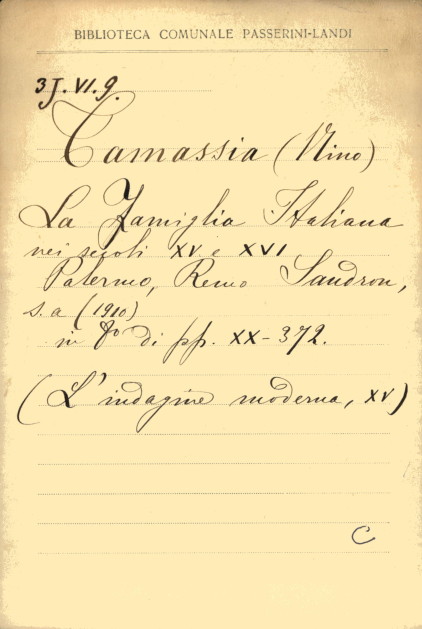 BIBLIOTECA COMUNALE PASSERINI-LANDI
3J.VI.9.
Tamassia (Nino)
La Famiglia Italiana
nei secoli XV e XVI
Palermo, Remo Sandron,
s.a (1910)
in 8º di pp. XX-372.
(L'indagine moderna, XV)
C